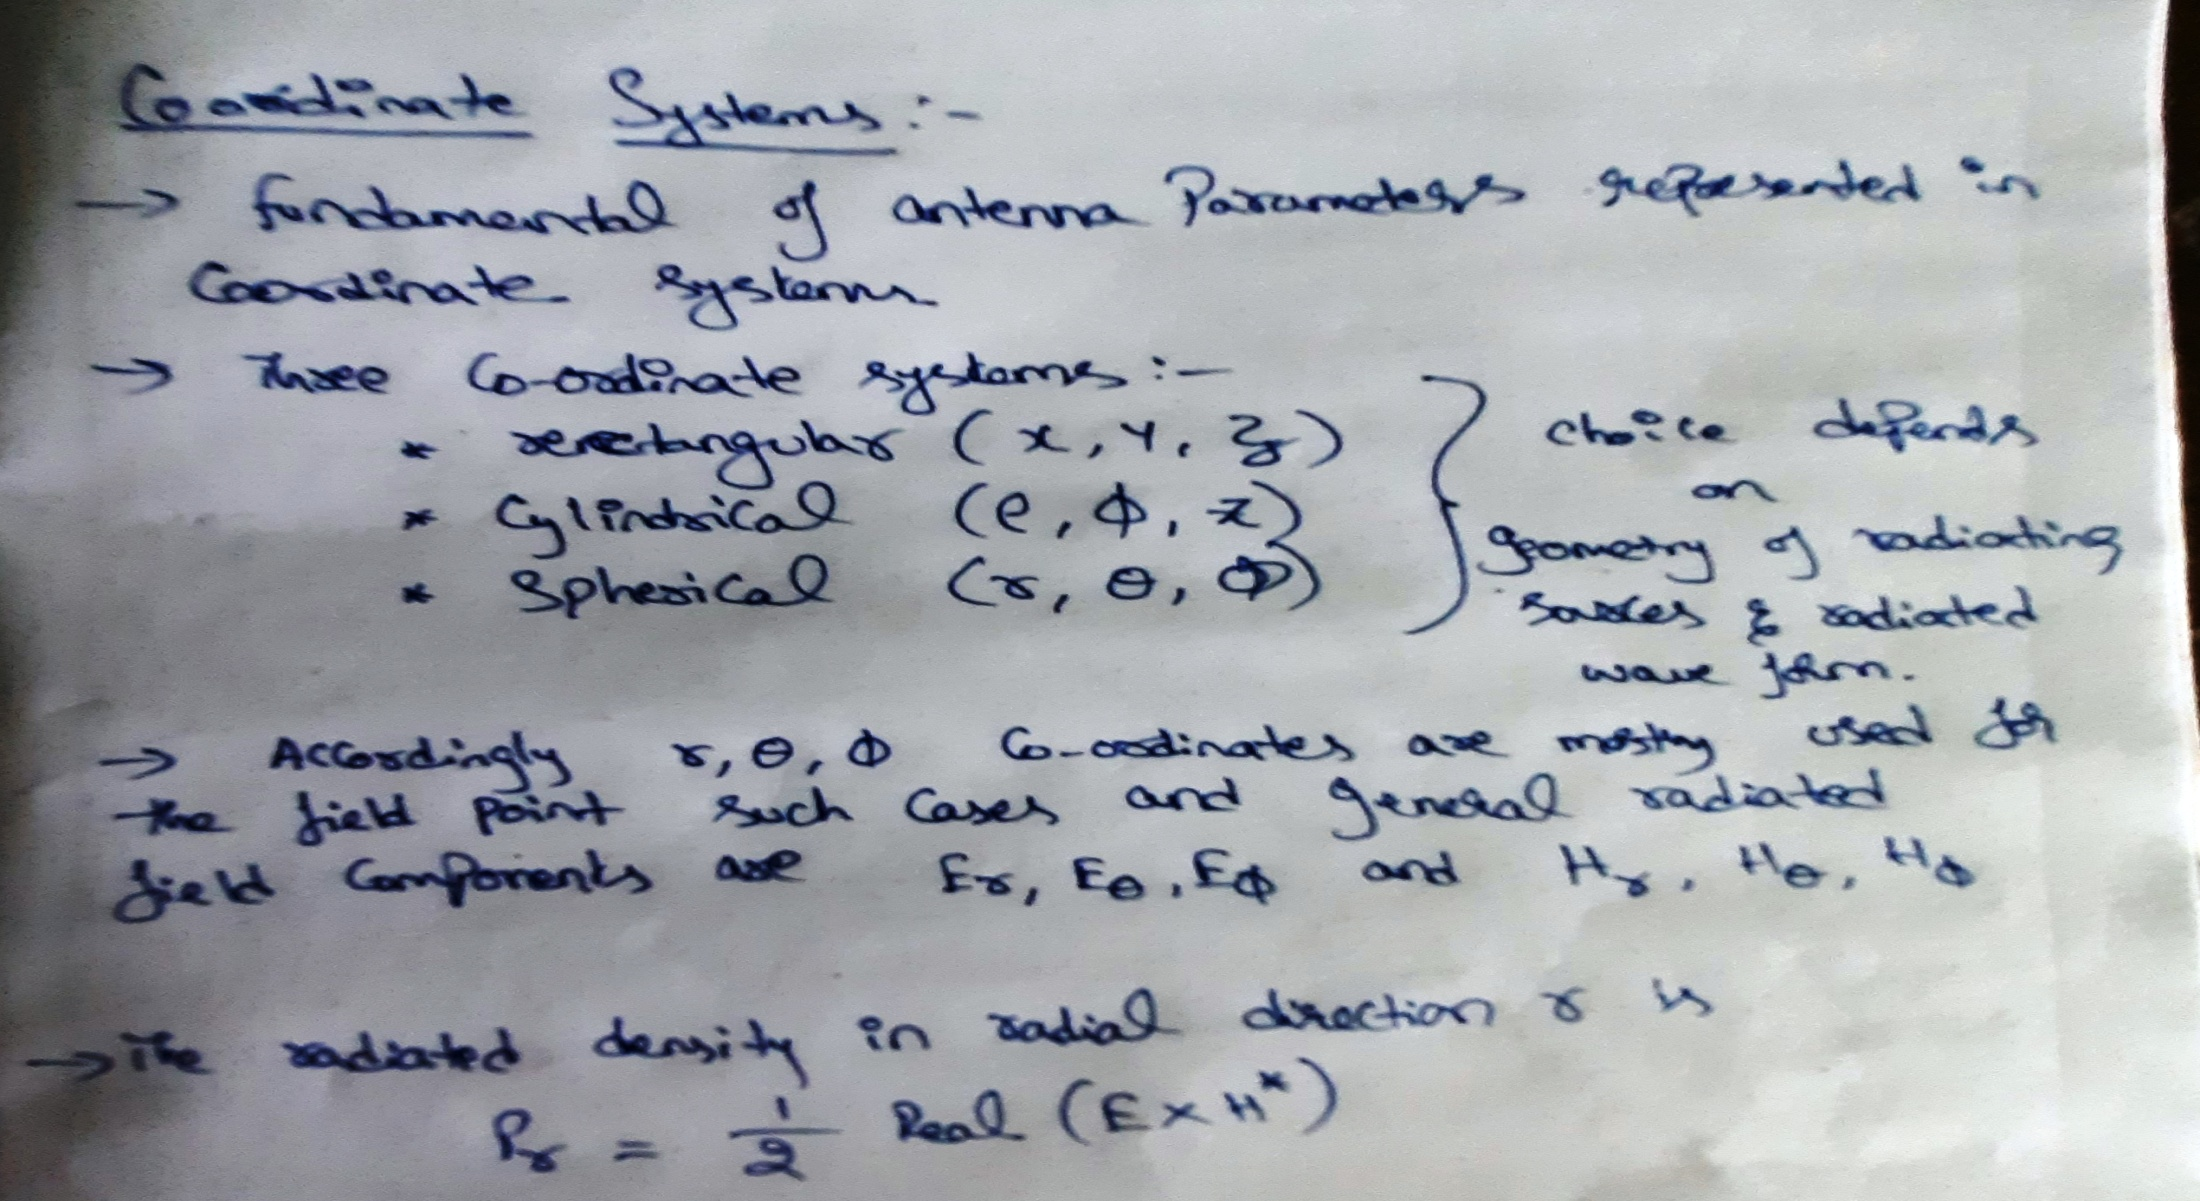 Coordinate Systems :-
→ fundamental of antenna Parameters represented in
Coordinate systems
→ Three Co-ordinate systems :-
* rerectangular (x, y, z)
* Cylindrical (ρ, ϕ, z)
* Spherical (r, θ, ϕ)
} choice depends
on
geometry of radiating
sources & radiated
wave form.
→ Accordingly r, θ, ϕ Co-ordinates are mostly used for
the field point such cases and general radiated
field Components are Er, Eθ, Eϕ and Hr, Hθ, Hϕ
→ The radiated density in radial direction r is
Pr = 1/2 Real (E × H*)